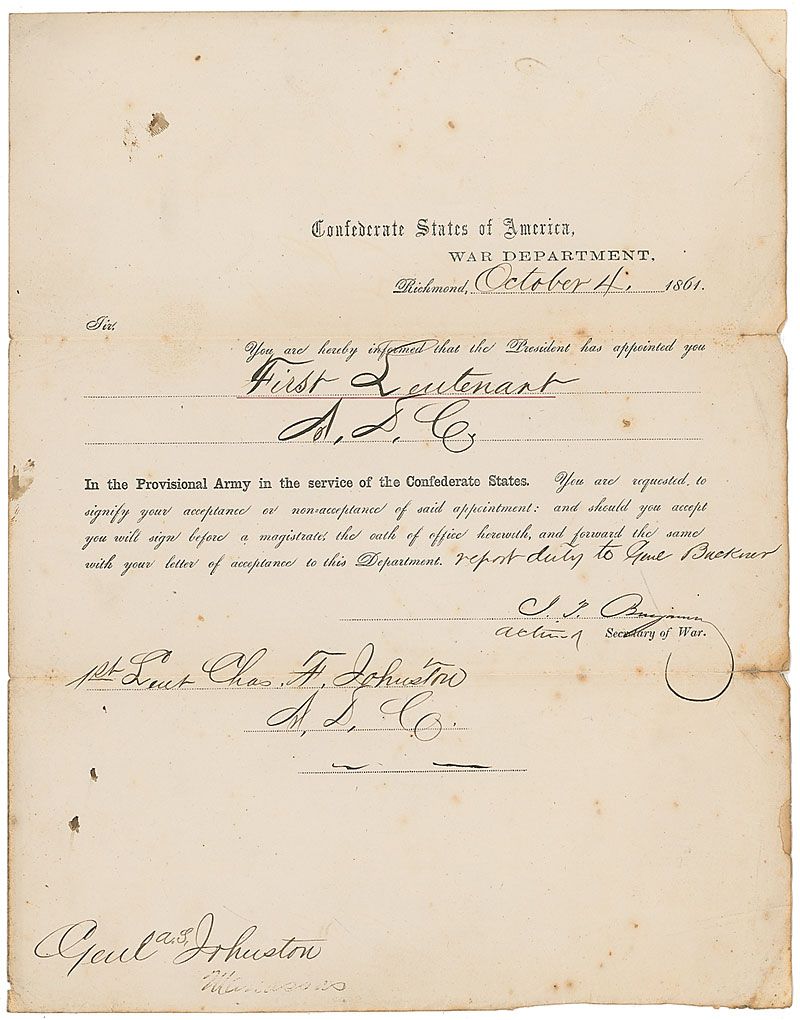 Confederate States of America,
WAR DEPARTMENT,
Richmond, October 4, 1861.
Sir.
You are hereby informed that the President has appointed you
First Lieutenant
A, D, C,
In the Provisional Army in the service of the Confederate States. You are requested to
signify your acceptance or non-acceptance of said appointment: and should you accept
you will sign before a magistrate, the oath of office herewith, and forward the same
with your letter of acceptance to this Department. report duty to Genl Buckner
J. P. Benjamin
acting Secretary of War.
1st Lieut Chas. F. Johnston
A, D, C.
Genl a.S. Johnston